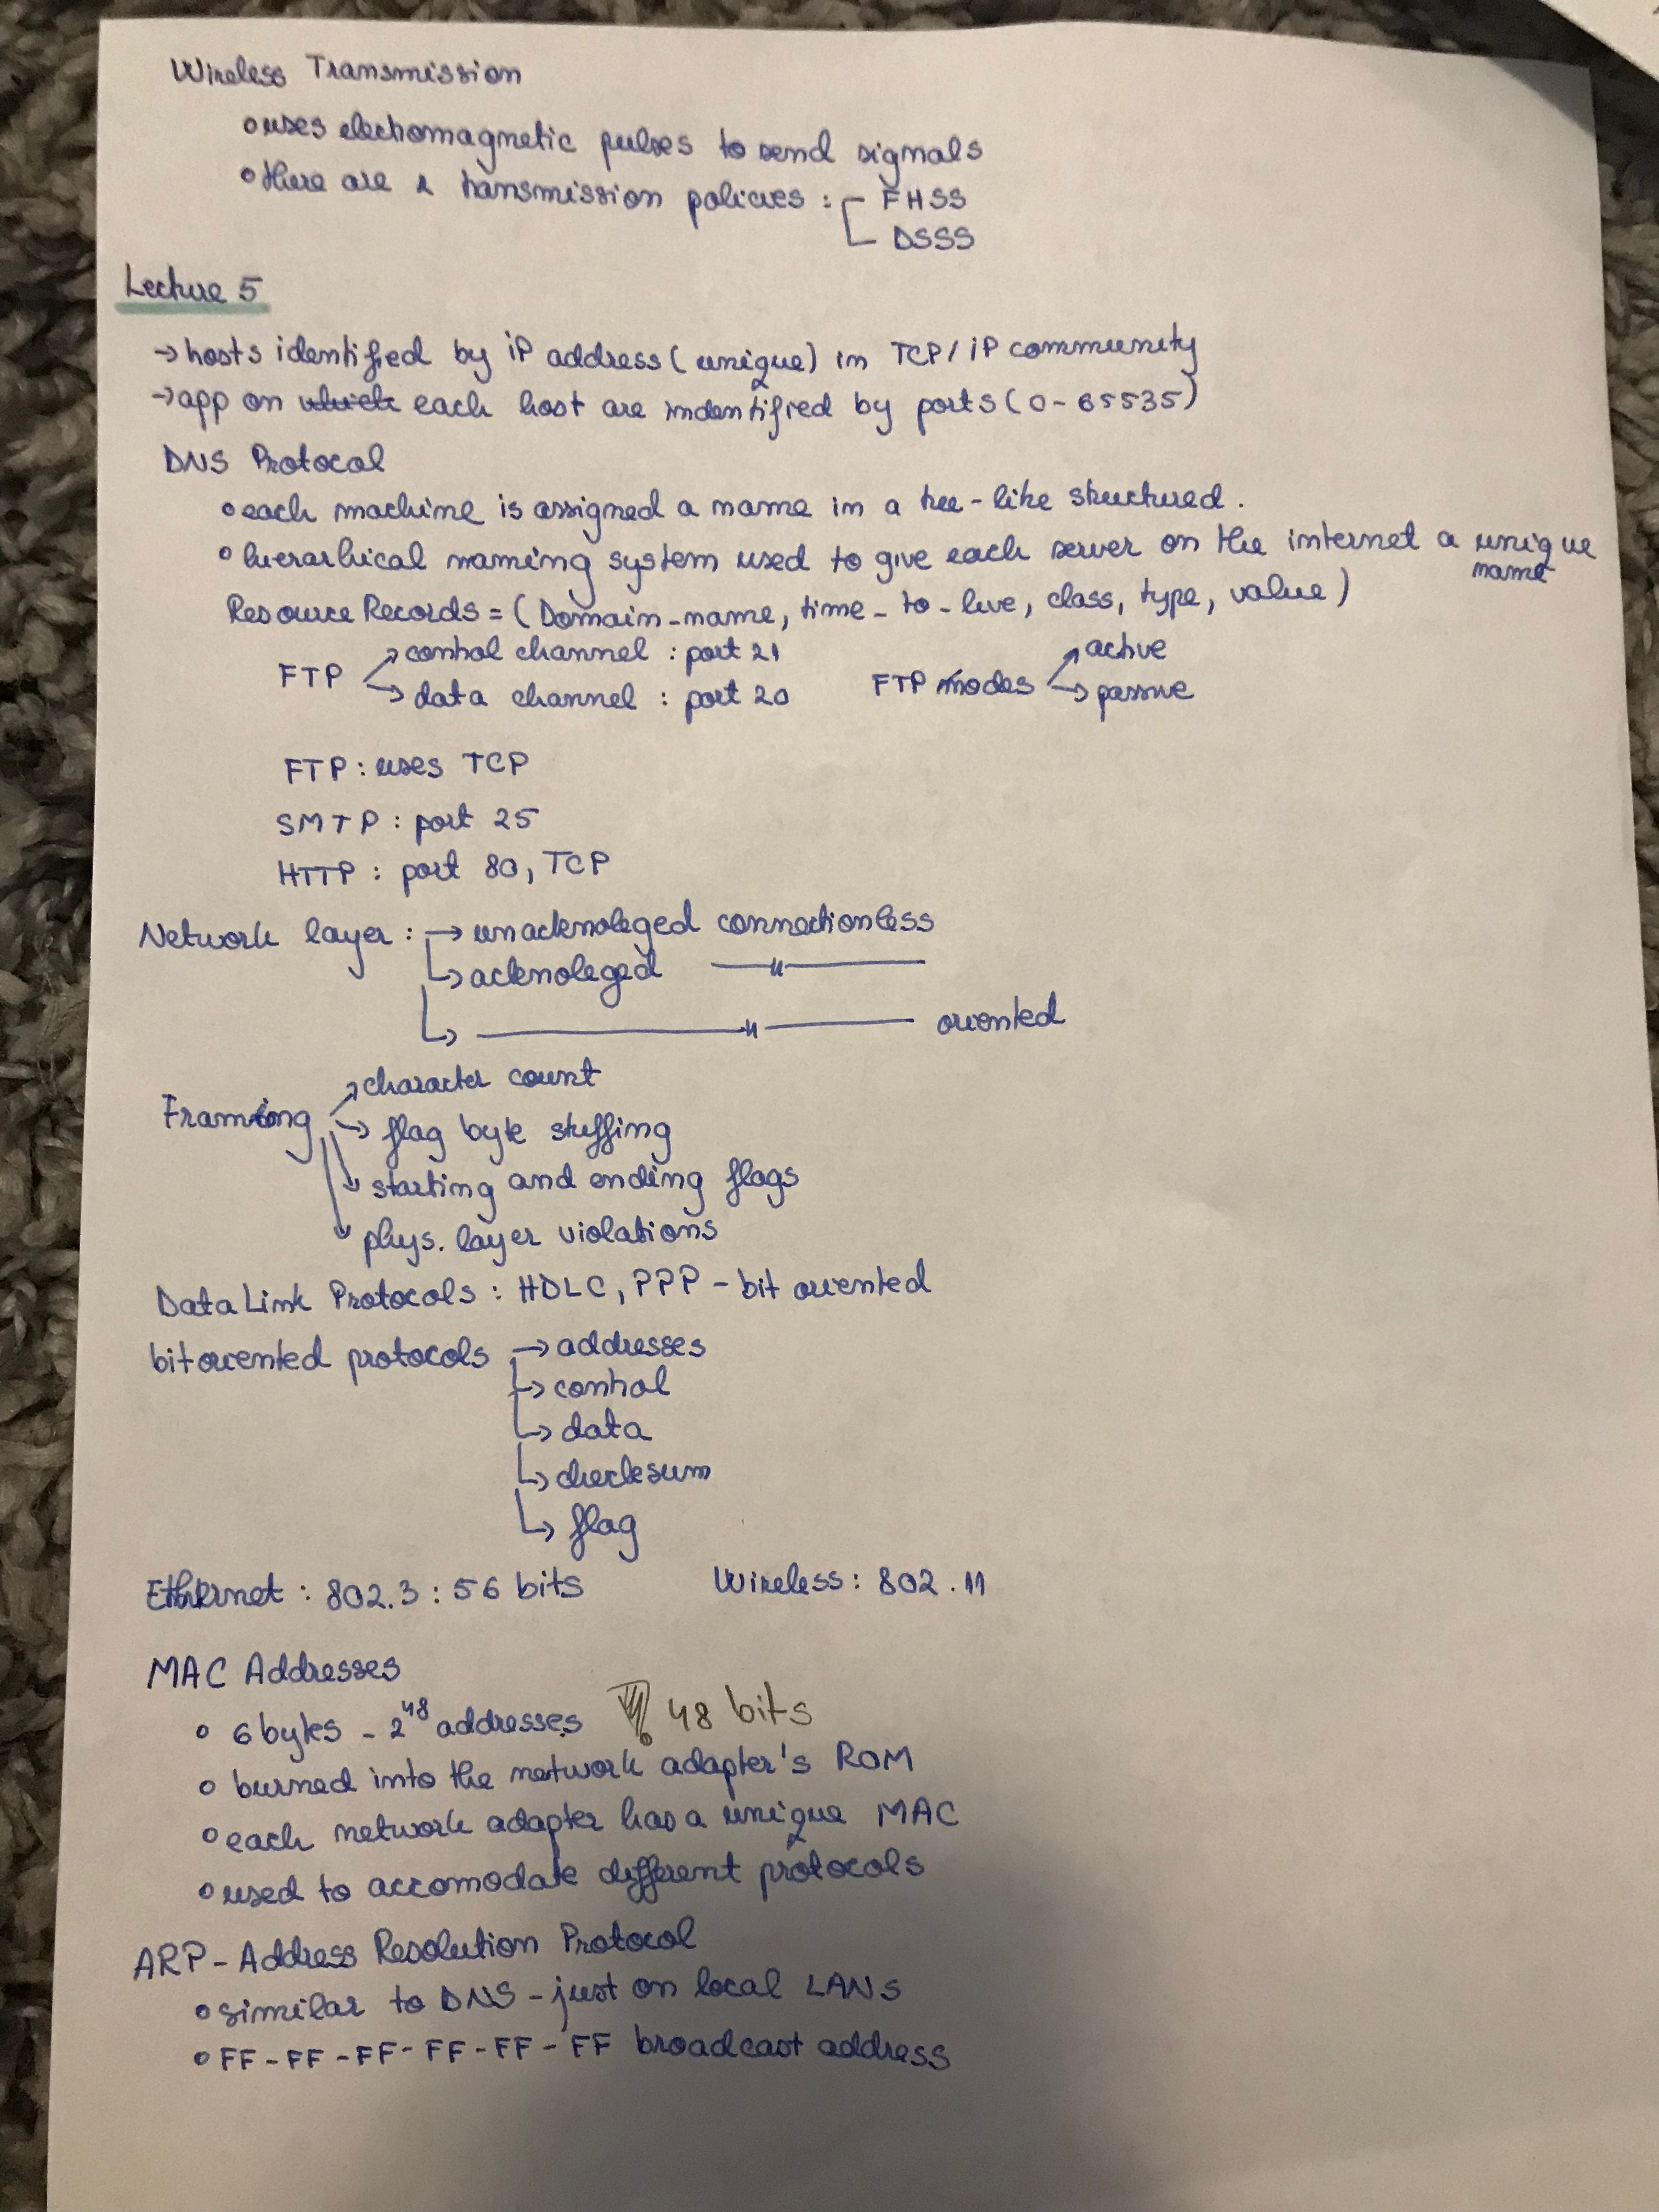 Wireless Transmission
uses electromagnetic pulses to send signals
there are 2 transmission policies : FHSS
DSSS
Lecture 5
→ hosts identified by iP address (unique) in TCP/iP community
→ app on which each host are indentified by ports (0-65535)
DNS Protocol
each machine is assigned a name in a tree-like structured.
hierarhical naming system used to give each server on the internet a unique
name
Resource Records = (Domain-name, time-to-live, class, type, value)
FTP → control channel : port 21
→ data channel : port 20
FTP modes → active
→ passive
FTP : uses TCP
SMTP : port 25
HTTP : port 80, TCP
Network layer : → unacknoleged connectionless
→ acknoleged —"—
→ —"— oriented
Framing → character count
→ flag byte stuffing
→ starting and ending flags
→ phys. layer violations
Data Link Protocols : HDLC, PPP - bit oriented
bit oriented protocols → addresses
→ control
→ data
→ checksum
→ flag
Ethernet : 802.3 : 56 bits Wireless : 802.11
MAC Addresses
6 bytes - 2^48 addresses ! 48 bits
burned into the network adapter's ROM
each network adapter has a unique MAC
used to accomodate different protocols
ARP - Address Resolution Protocol
similar to DNS - just on local LANs
FF-FF-FF-FF-FF-FF broadcast address